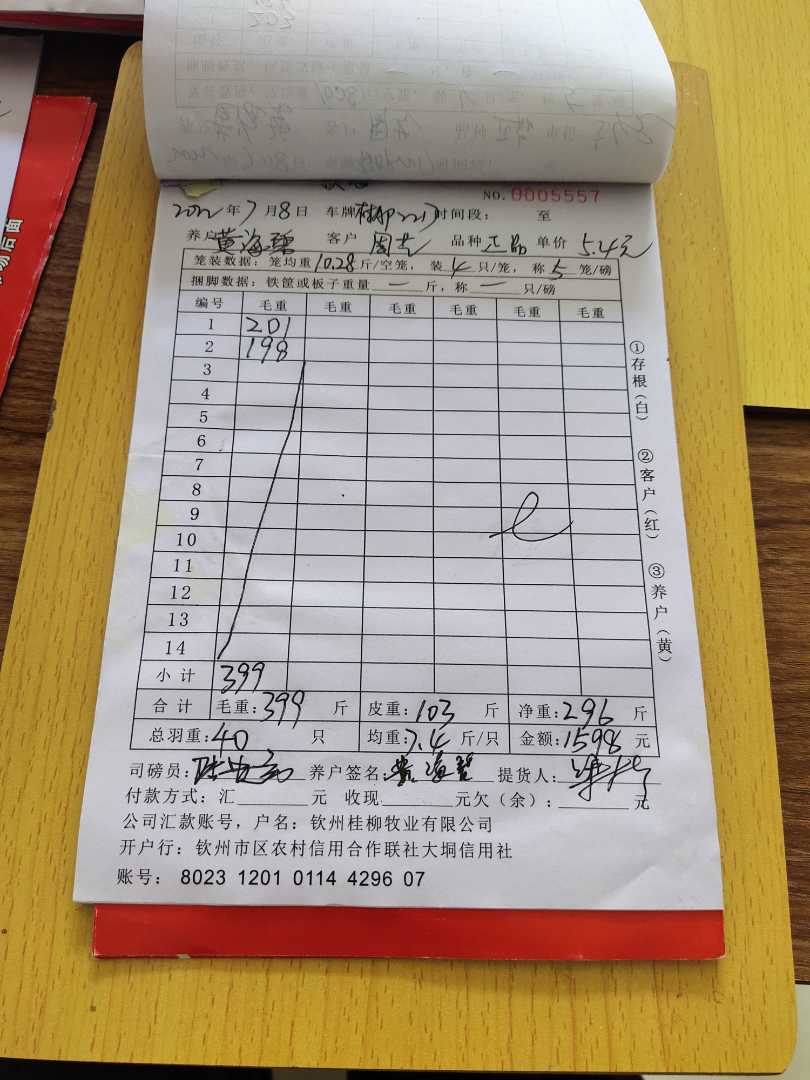 NO. 0005557
2022年7月8日 车牌 2217 时间段： 至
养户 黄海 客户 周 品种 正品 单价 5.4元
笼装数据：笼均重10.28斤/空笼，装4只/笼，称5笼/磅
捆脚数据：铁筐或板子重量—斤，称—只/磅
编号 毛重 毛重 毛重 毛重 毛重 毛重
1 201
2 198
3
4
5
6
7
8
9
10
11
12
13
14
小计 399
合计 毛重:399斤 皮重:103斤 净重:296斤
总羽重:40只 均重:7.4斤/只 金额:1598元
司磅员: 养户签名: 黄海 提货人:
付款方式：汇 元 收现 元欠（余）: 元
公司汇款账号，户名：钦州桂柳牧业有限公司
开户行：钦州市区农村信用合作联社大垌信用社
账号： 8023 1201 0114 4296 07
①存根（白）
②客户（红）
③养户（黄）